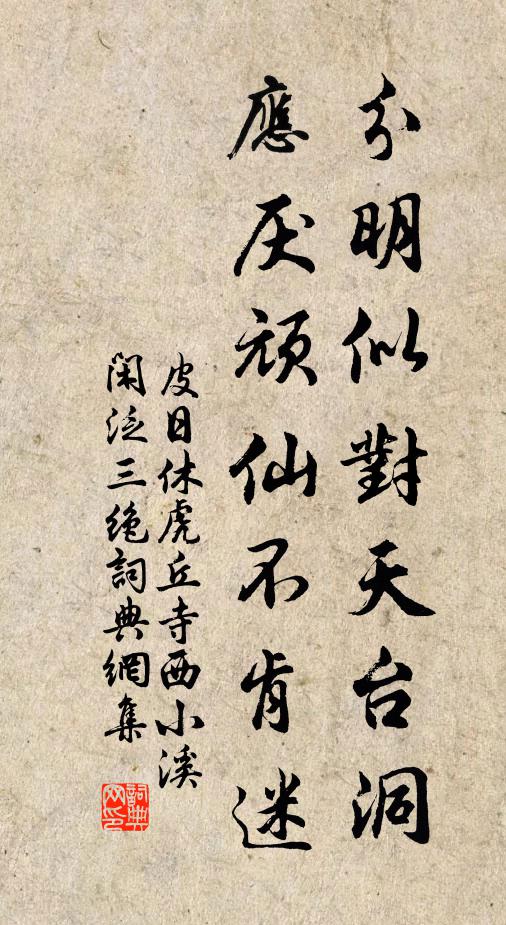 分明似對天台洞
應厌頑仙不肯迷
皮日休虎丘寺西小溪
閑泛三绝詞典網集
詞典
网印